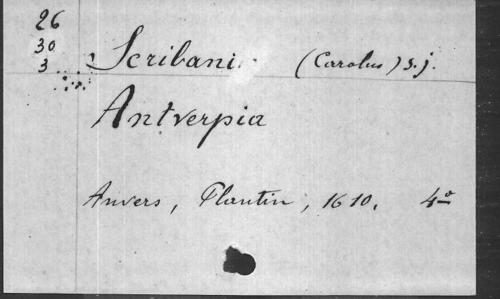 26
30
3
Scribani (Carolus) S. j.
Antverpia
Anvers, Plantin, 1610. 4º